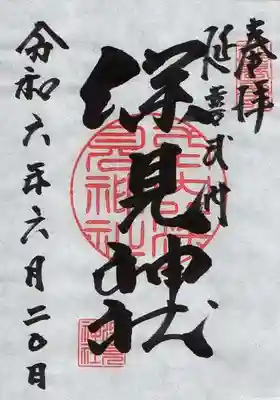 奉拝
延喜式内
見神社
令和六年六月二〇日